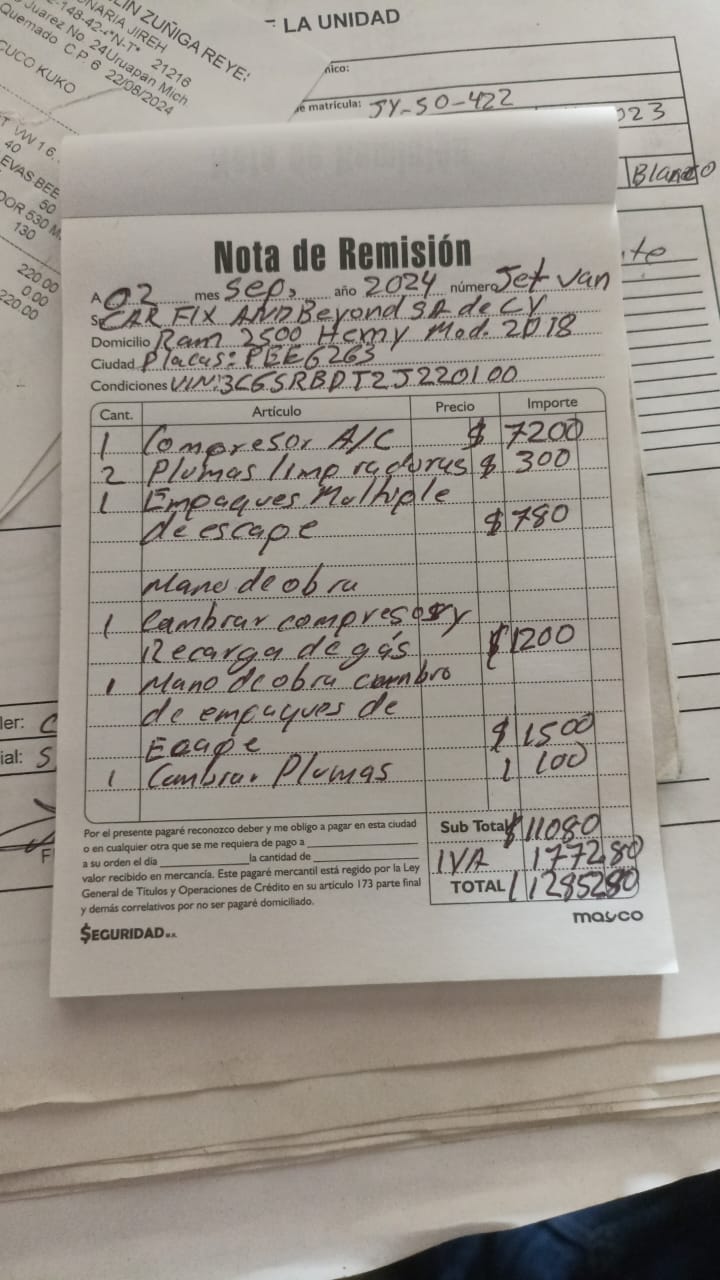 LIN ZUÑIGA REYES
NARIA JIREH
-148-42-*N-T* 21216
Juarez No 24Uruapan Mich
Quemado C.P 6 22/08/2024
CUCO KUKO
T VW 1 6.
40
EVAS BEE
50
DOR 530 M
130
220 00
0.00
220.00
LA UNIDAD
nico:
e matrícula: JY-SO-422
023
Blanco
Nota de Remisión
A 02 mes Sep, año 2024 número Jet van
S CAR FIX AND Beyond SA de CV
Domicilio Ram 2500 Hemy Mod. 2018
Ciudad Placas: PEE6263
Condiciones VIN:3C6SRBDT2JG220100
Cant. Artículo Precio Importe
1 Compresor A/C $ 7200
2 Plumas limp radoras $ 300
1 Empaques Multiple
de escape $ 780
Mano de obra
1 Cambrar compresor y
Recarga de gás $ 1200
1 Mano de obra cambro
de empaques de
Ecape $ 1500
1 Cambrar Plumas $ 100
Por el presente pagaré reconozco deber y me obligo a pagar en esta ciudad
o en cualquier otra que se me requiera de pago a
a su orden el día la cantidad de
valor recibido en mercancía. Este pagaré mercantil está regido por la Ley
General de Titulos y Operaciones de Crédito en su artículo 173 parte final
y demás correlativos por no ser pagaré domiciliado.
Sub Total $ 11080
IVA 177280
TOTAL 1285280
$EGURIDAD M.R.
masco
ler: C
ial: S
F